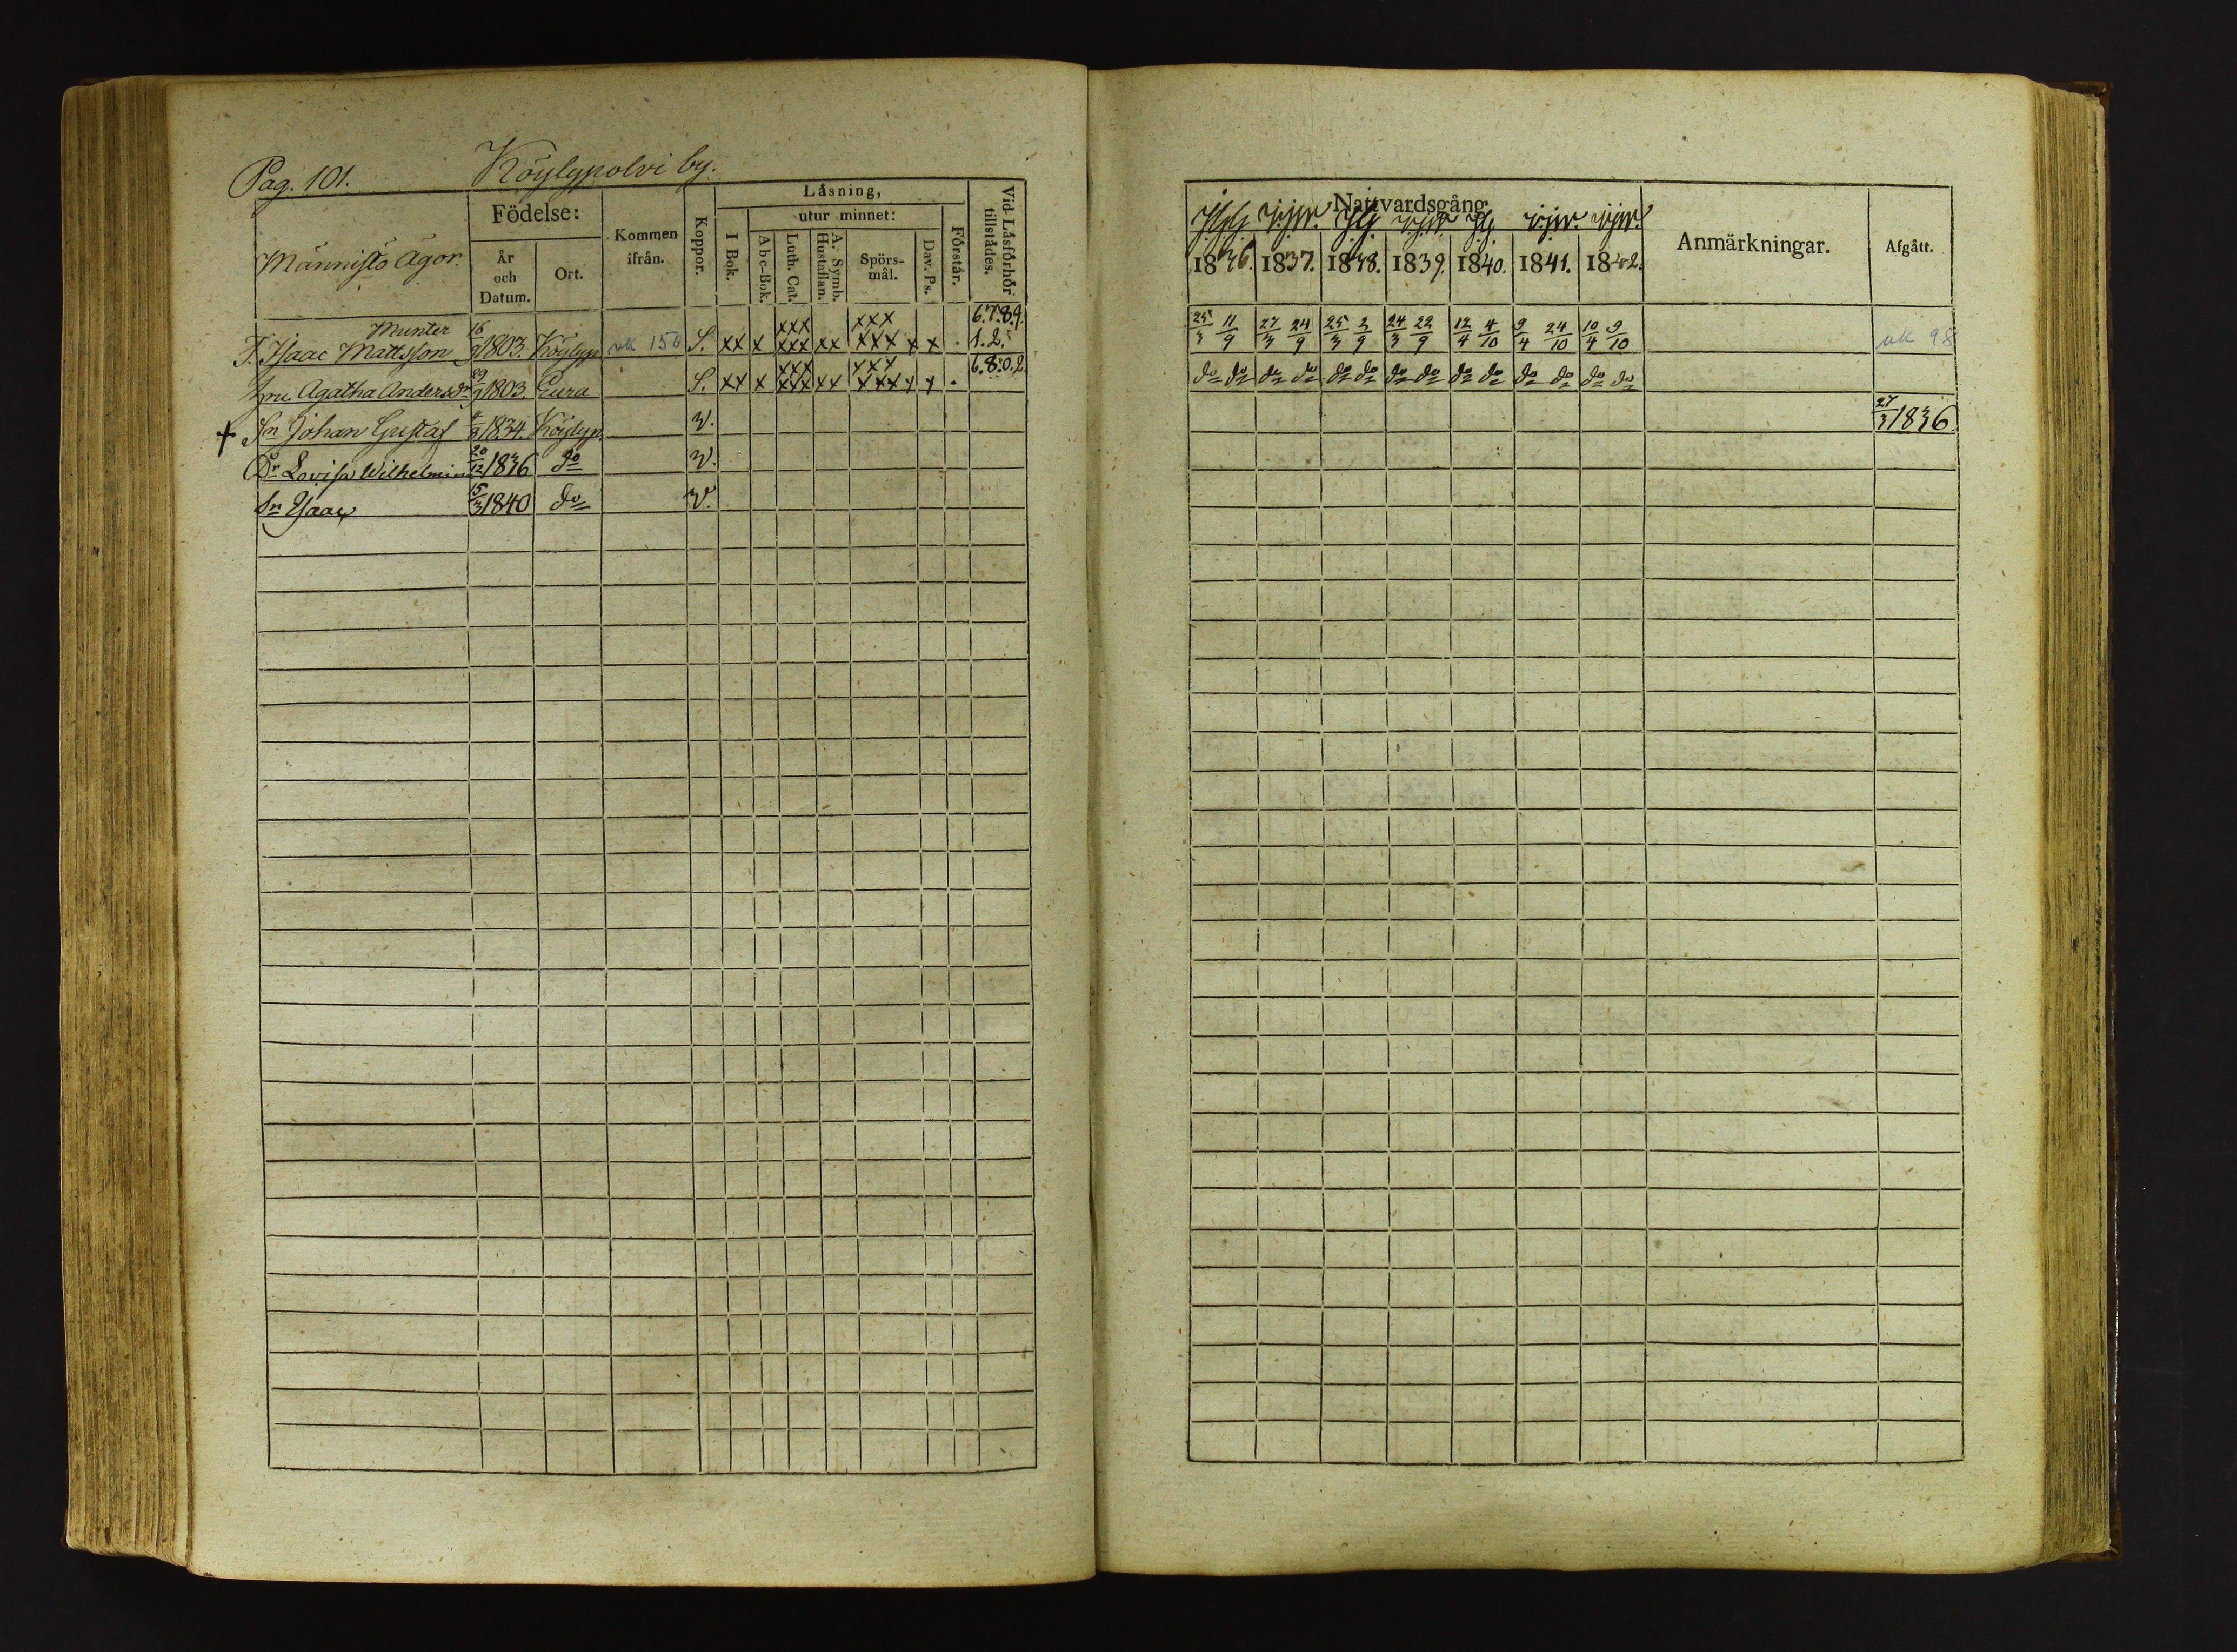 Pag. 101. Köylypolvi by.
Männistö Ägor.
Födelse:
År och Datum.
Ort.
Kommen ifrån.
Koppor.
Läsning,
I Bok.
utur minnet:
Abc-Bok.
Luth. Cat.
A. Symb. Hustaflan.
Spörs-mål.
Dav. Ps.
Förstår.
Vid Läsförhör tillstådes.
Munter 16 xxx xxx 6.7.8.9.
T. Isaac Mattsson /9 1803. Köylyp. uk 150 S. xx x xxx xx xxx x x . 1.2.
29 xxx xxx 6.8.0.2
Hru. Agatha Andersdr 1803. Eura S. xx x xxx xx xxx x x .
† Sn Johan Gustaf 1834. Köylyp. v.
Dr Lovisa Wilhelmina 20/12 1836 do v.
Sn Isaac 15/3 1840 do v.
Nattvardsgång
1836. 1837. 1838. 1839. 1840. 1841. 1842.
Anmärkningar.
Afgått.
25/3 11/9 27/3 24/9 25/3 2/9 24/3 22/9 12/4 4/10 9/4 24/10 10/4 9/10 uk 98
do do do do do do do do do do do do do do
27/3 1836